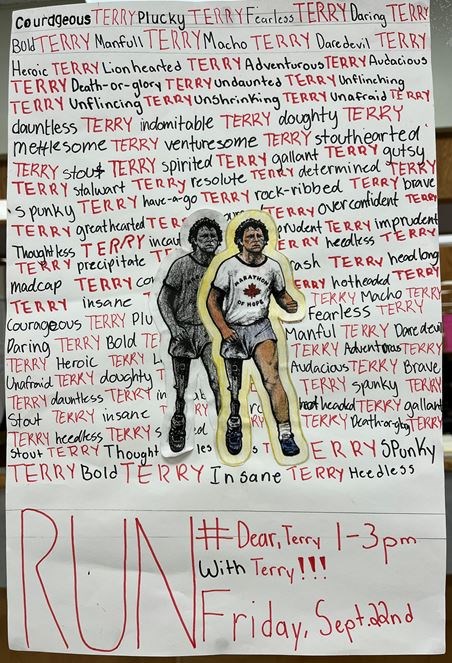 Courdgeous TERRY Plucky TERRY Fearless TERRY Daring TERRY
Bold TERRY Manfull TERRY Macho TERRY Daredevil TERRY
Heroic TERRY Lionhearted TERRY Adventurous TERRY Audacious
TERRY Death-or-glory TERRY Undaunted TERRY Unflinching
TERRY Unflincing TERRY Unshrinking TERRY Unafraid TERRY
dauntless TERRY indomitable TERRY doughty TERRY
mettlesome TERRY venturesome TERRY stouthearted
TERRY stout TERRY spirited TERRY gallant TERRY gutsy
TERRY stalwart TERRY resolute TERRY determined TERRY
spunky TERRY have-a-go TERRY rock-ribbed TERRY brave
TERRY greathearted TERR ERRY overconfident TERRY
Thoughtless TERRY incau prudent TERRY imprudent
TERRY precipitate TERRY heedless TERRY
madcap TERRY co rash TERRY headlong
TERRY insane TERRY hotheaded TERRY
Courageous TERRY Plu Fearless TERRY Macho TERRY
Daring TERRY Bold TE Manful TERRY Daredevil
TERRY Heroic TERRY L TERRY Adventorus TERRY
Unafraid TERRY doughty Audacious TERRY Brave
TERRY dauntless TERRY in TERRY spunky TERRY
Stout TERRY insane TERRY gallant
TERRY heedless TERRY s ed TERRY Death-or-glory TERRY
stout TERRY Thought les s T ERRY SPunky
TERRY Bold TERRY Insane TERRY Heedless
MARATHON
OF HOPE
RUN
#Dear, Terry 1-3pm
With Terry!!!
Friday, Sept.22nd